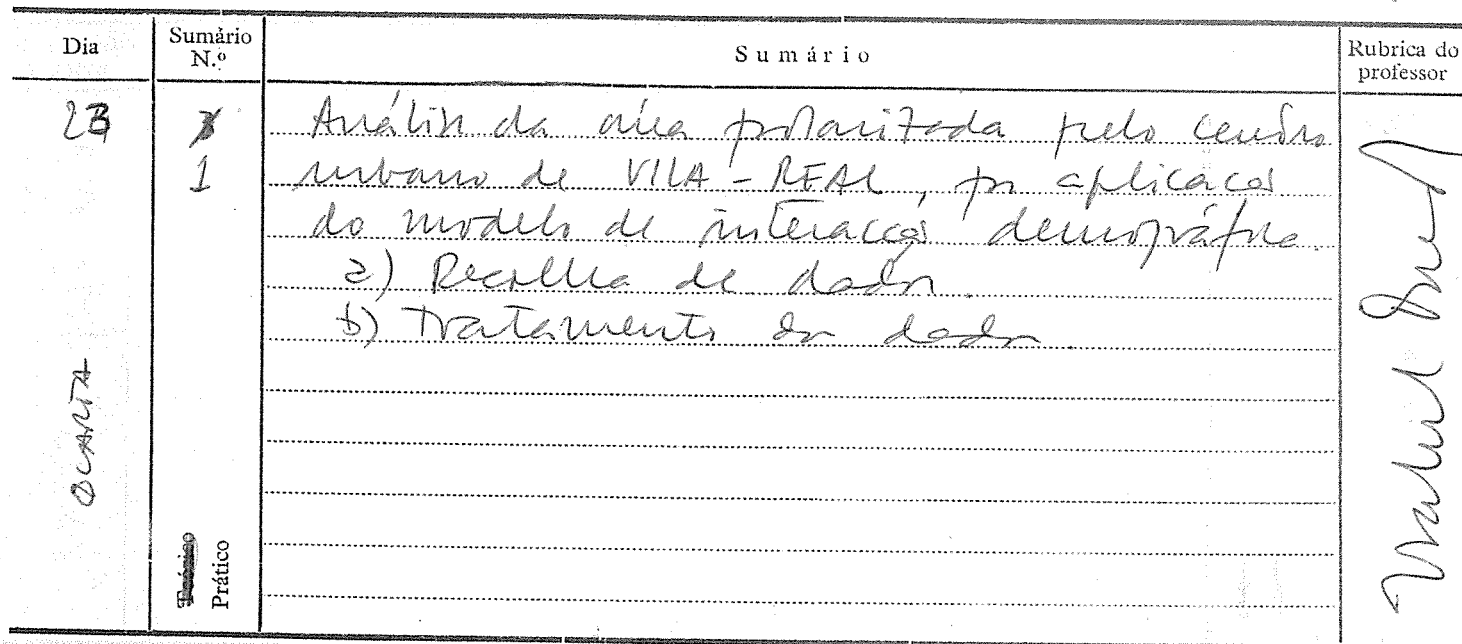 Dia
Sumário N.º
Sumário
Rubrica do professor
23
1
Análise da área polarizada pelo centro
urbano de VILA-REAL, por aplicação
do modelo de interacção demográfica.
a) Recolha de dados.
b) Tratamento dos dados.
QUARTA
Teórico
Prático